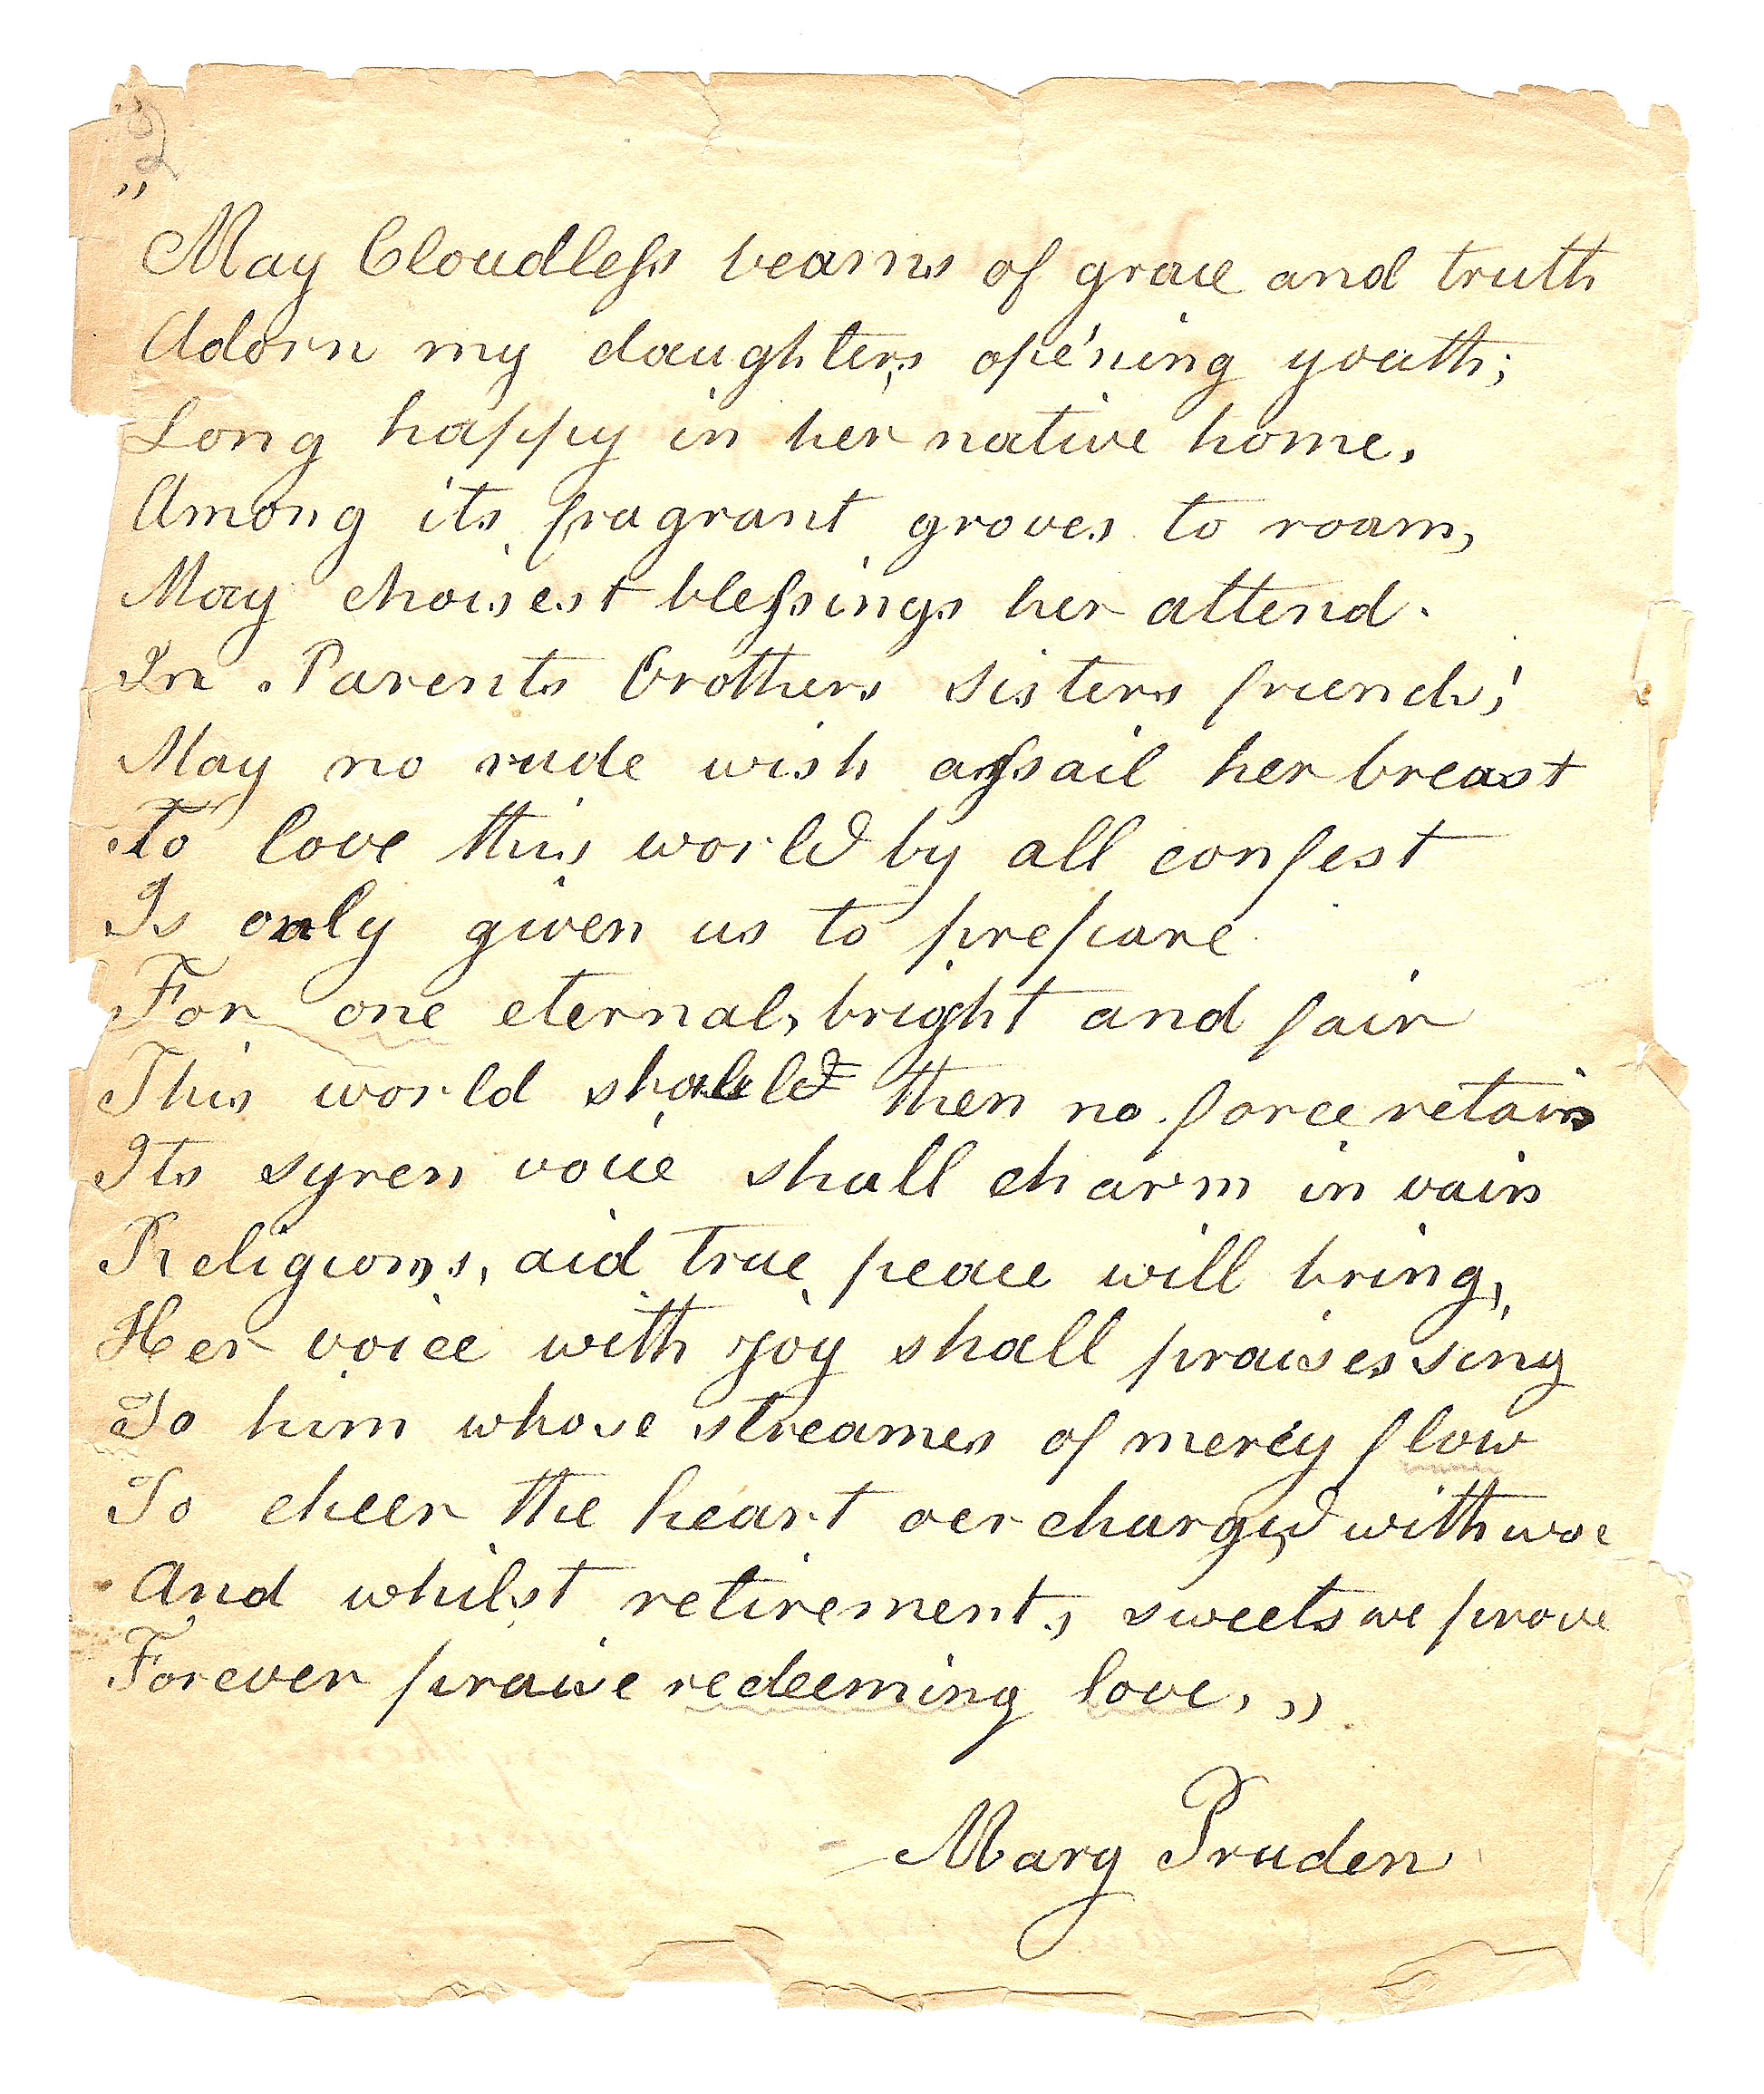 2
"
May Cloudless beams of grace and truth
Adorn my daughters ope'ning youth;
Long happy in her native home,
Among its fragrant groves to roam,
May choisest blessings her attend.
In Parents Brothers sisters friends;
May no rude wish assail her breast
To love this world by all confest
Is only given us to prepare
For one eternal, bright and fair
This world shall then no force retain
Its syren voice shall charm in vain
Religions, aid true peace will bring,
Her voice with joy shall praises sing
To him whose streames of mercy flow
To cheer the heart oer charged with woe
And whilst retirements, sweets we prove
Forever praise redeeming love, "
Mary Pruden